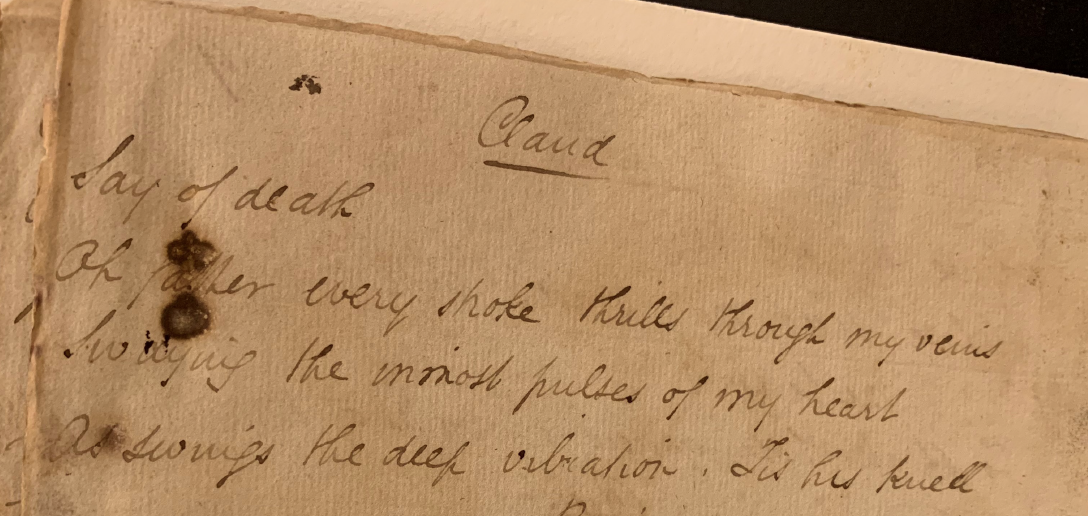 Claud
Say of death
Oh father every stroke thrills through my veins
Swaying the inmost pulses of my heart
As swings the deep vibration. Tis his knell